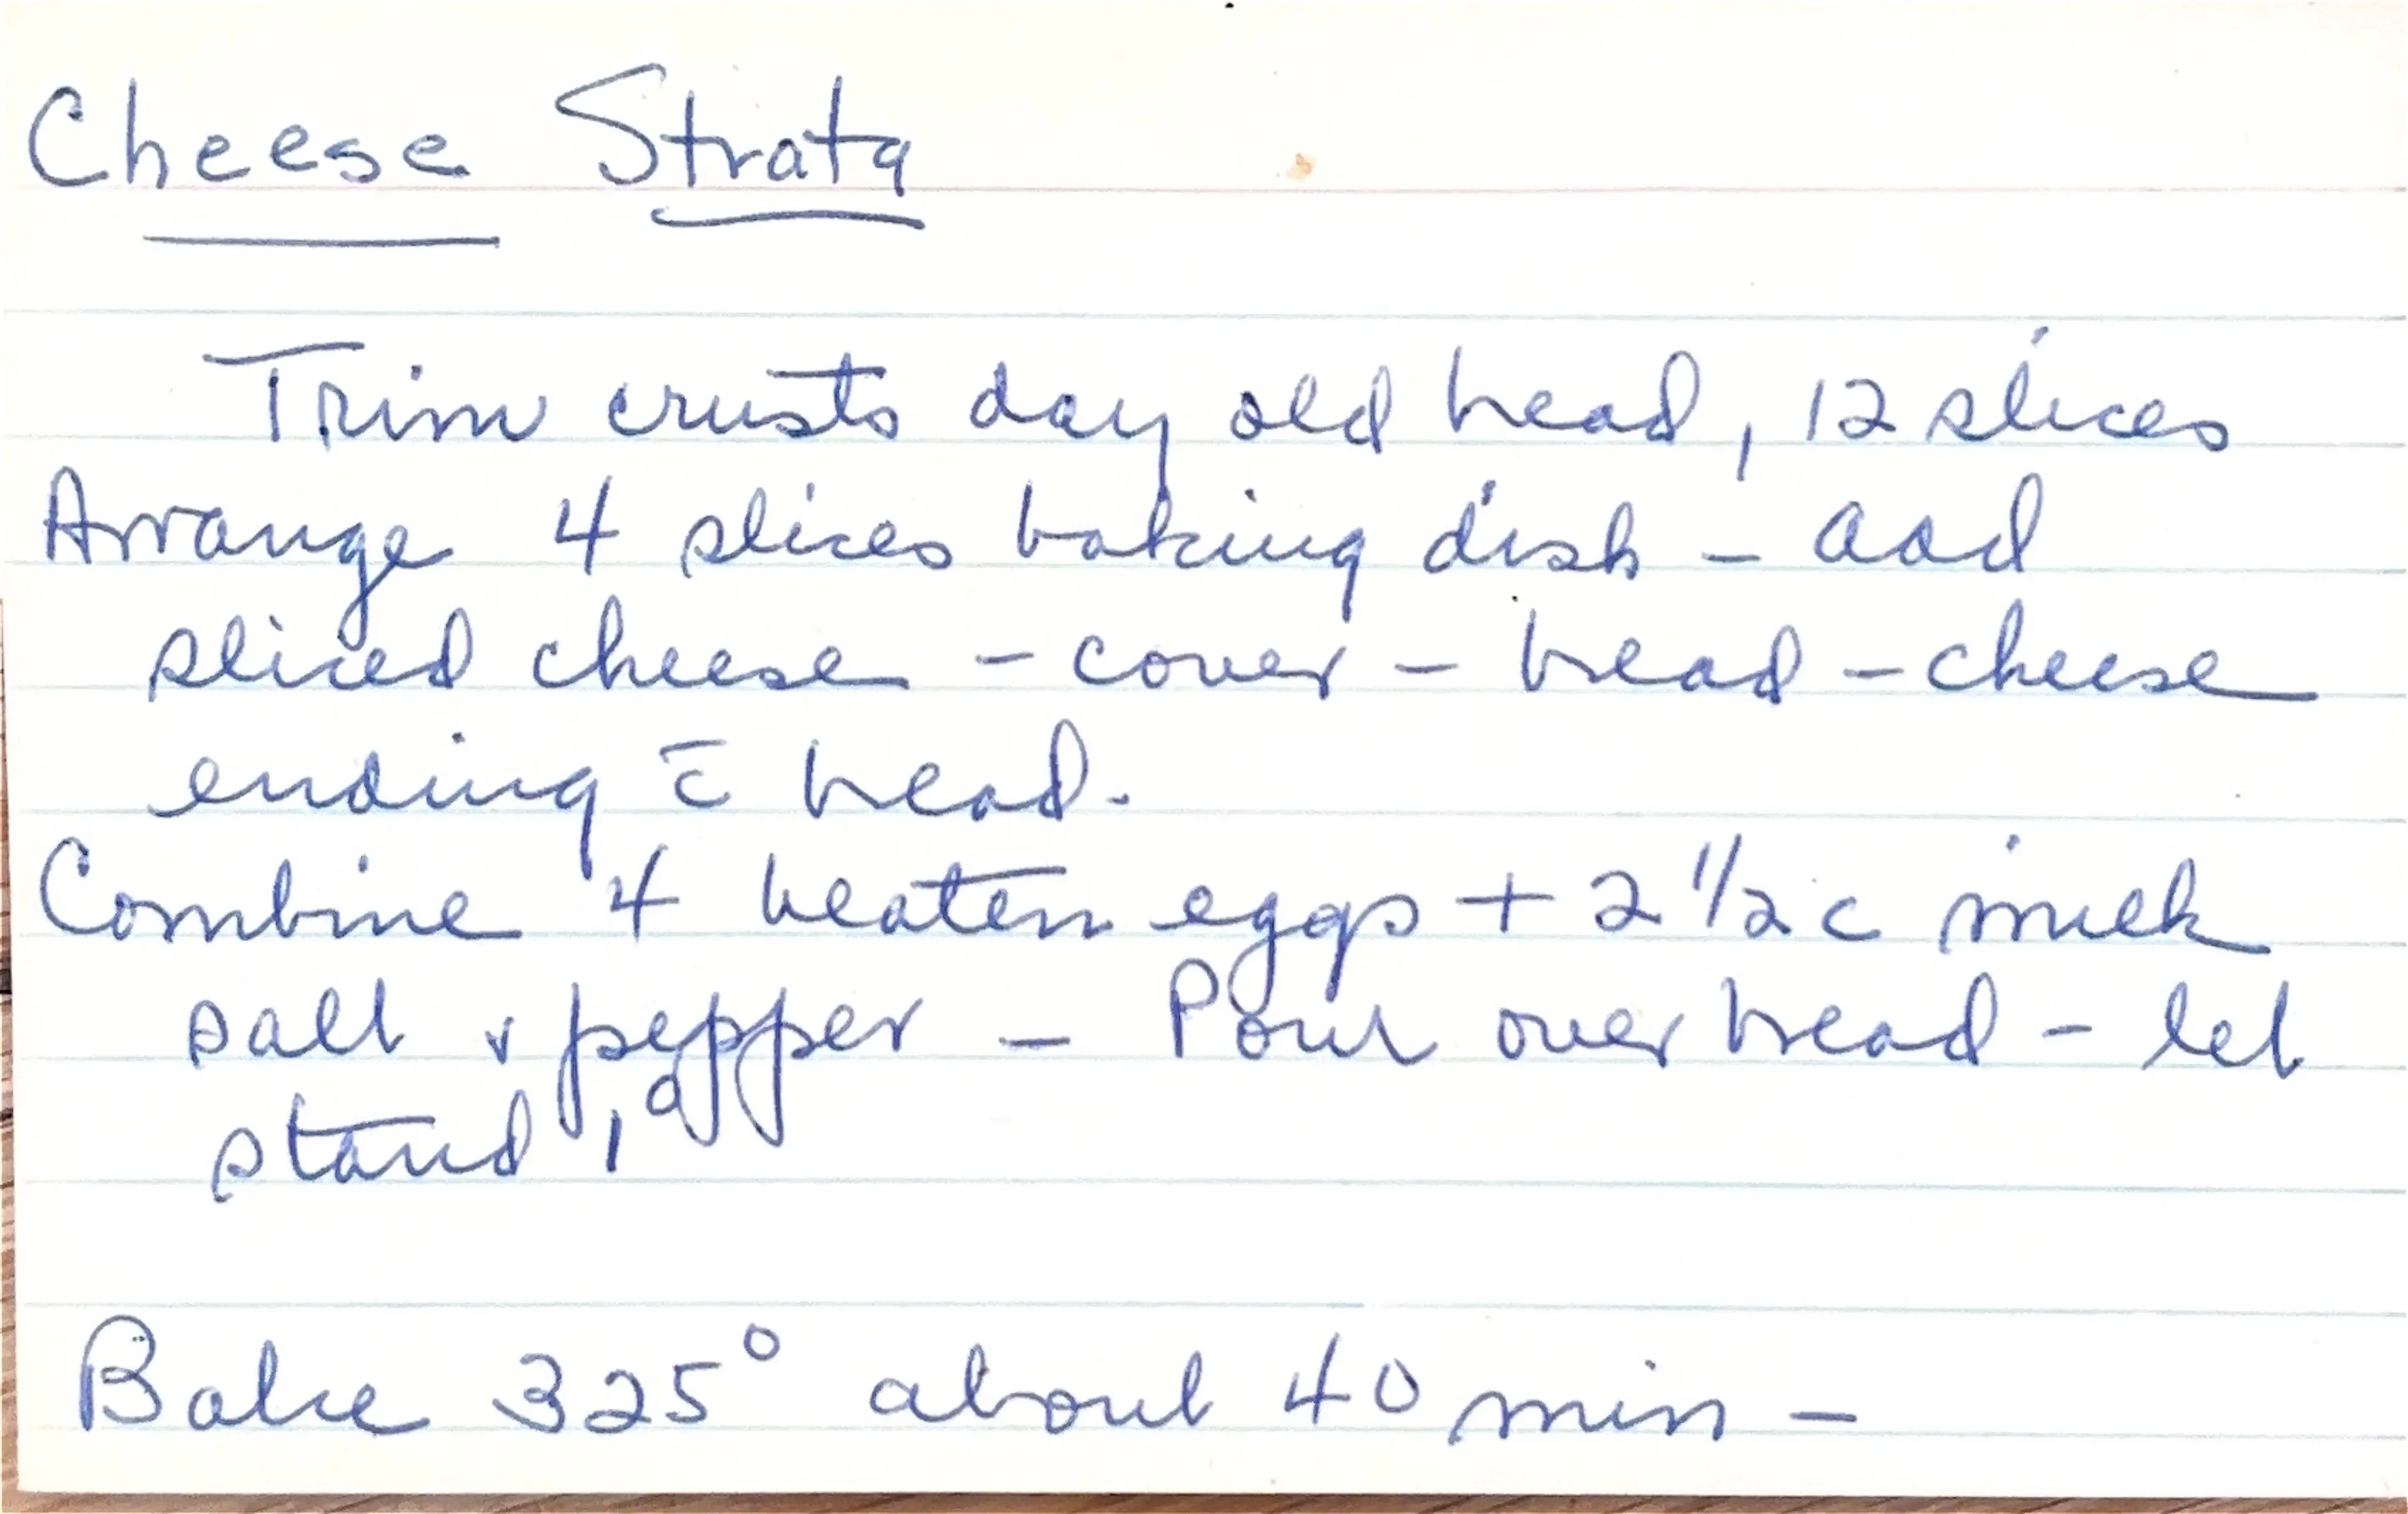 Cheese Strata
Trim crusts day old bread, 12 slices
Arrange 4 slices baking dish - add
sliced cheese - cover - bread - cheese
ending c̄ bread.
Combine 4 beaten eggs + 2 1/2 c milk
salt & pepper - Pour over bread - let
stand,
Bake 325° about 40 min -